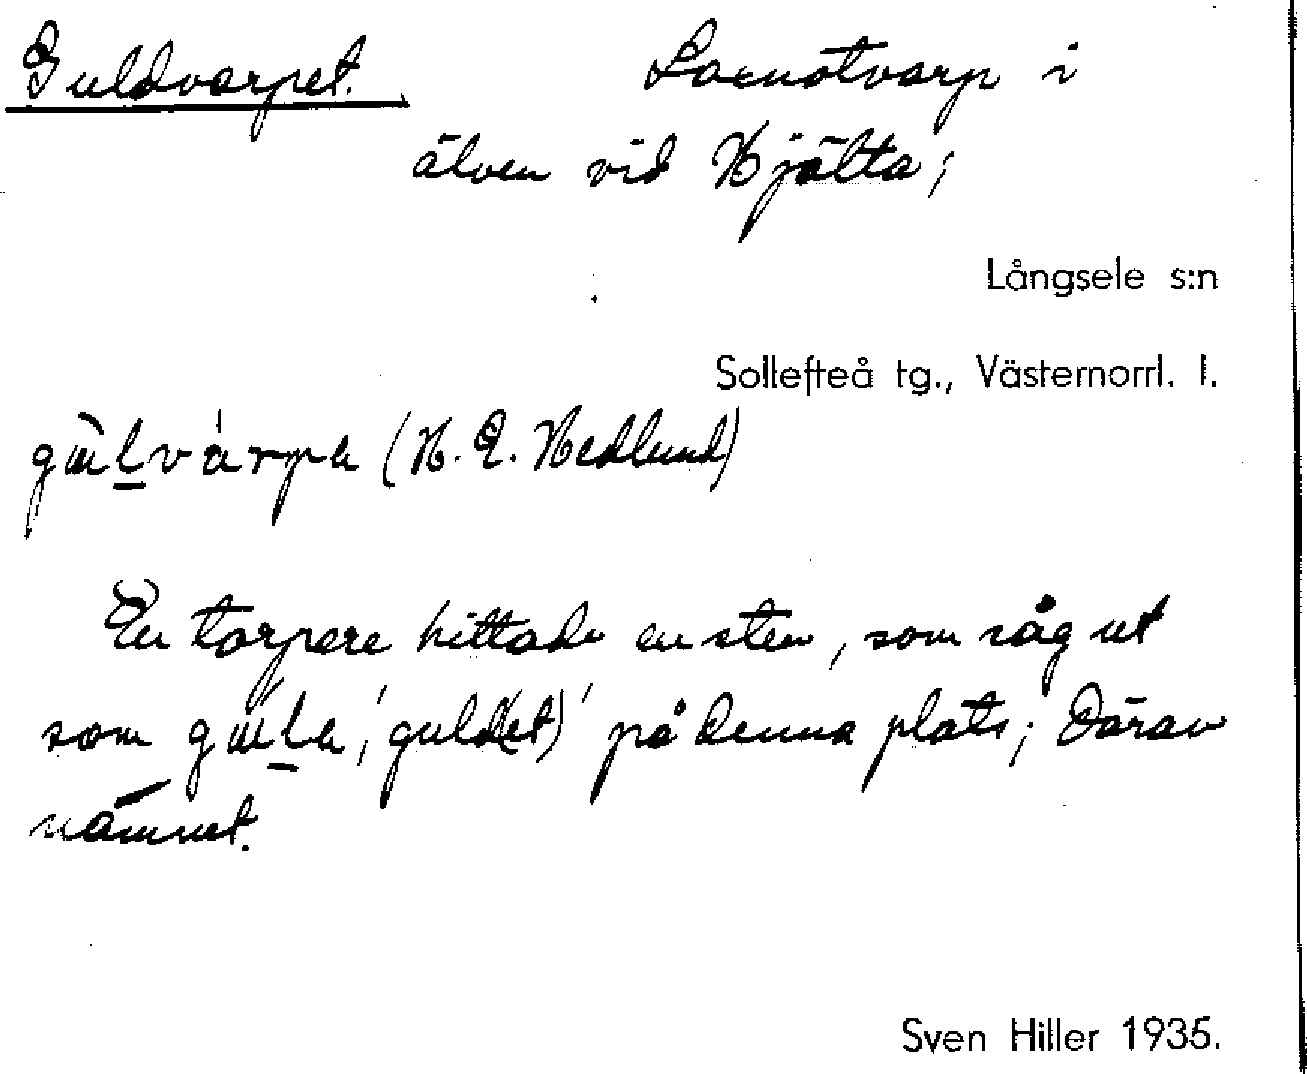 Guldvarpet. Laxnotvarp i
älven vid Hjälta;
Långsele s:n
Sollefteå tg., Västernorrl. l.
(H. E. Hedlund)
En torpare hittade en sten, som såg ut
som 'guld(et)' på denna plats; Därav
nämnet.
Sven Hiller 1935.